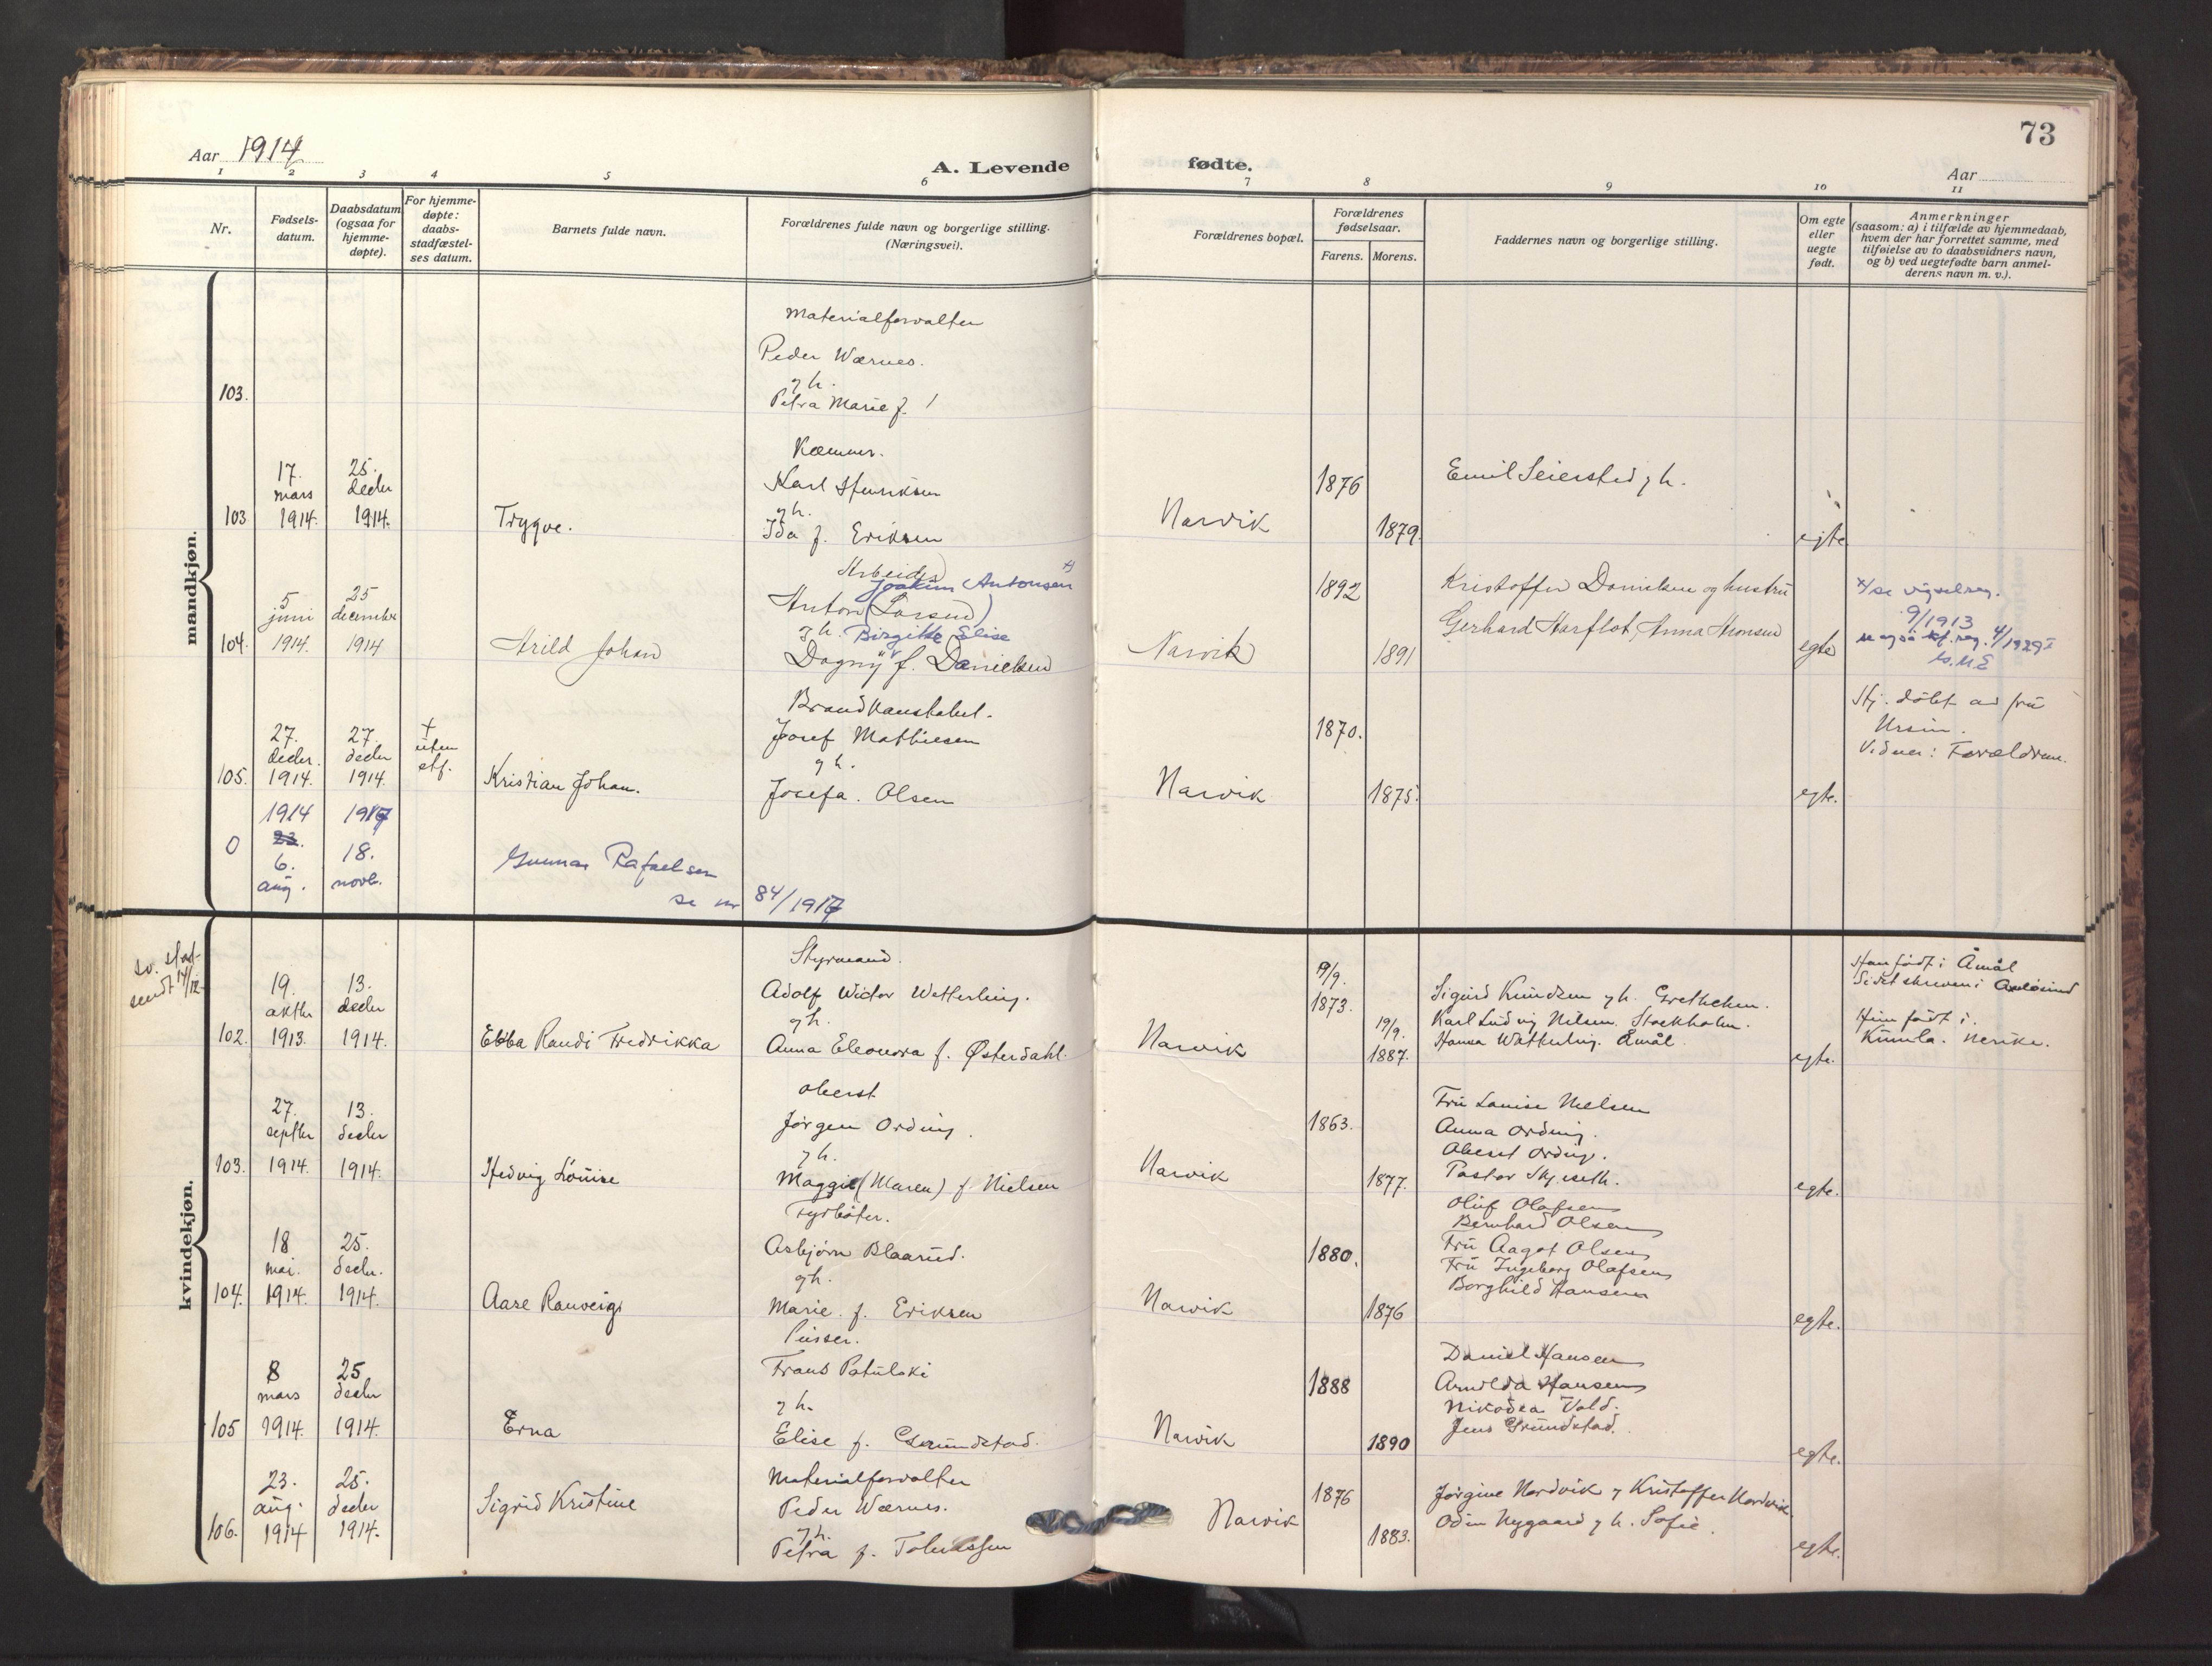 73
Aar 1914
A. Levende
fødte.
Aar
1 2 3 4 5 6 7 8 9 10 11
Nr.
Fødsels-
datum.
Daabsdatum
(ogsaa for
hjemme-
døpte).
For hjemme-
døpte:
daabs-
stadfæstel-
ses datum.
Barnets fulde navn.
Forældrenes fulde navn og borgerlige stilling.
(Næringsvei).
Forældrenes bopæl.
Forældrenes
fødselsaar.
Farens. Morens.
Faddernes navn og borgerlige stilling.
Om egte
eller
uegte
født.
Anmerkninger
(saasom: a) i tilfælde av hjemmedaab,
hvem der har forrettet samme, med
tilføielse av to daabsvidners navn,
og b) ved uegtefødte barn anmel-
derens navn m. v.).
mandkjøn.
103.
Materialforvalter
Peder Wærnes.
g h.
Petra Marie f.
103
17.
mars
1914.
25.
decbr
1914.
Trygve.
Kæmner.
Karl Henriksen
g h.
Ida f. Eriksen
Narvik
1876
1879.
Emil Seiersted g h.
egte
104.
5
juni
1914.
25
december
1914
Arild Johan
Arbeider
Joakim Antonsen
Anton (Larsen)
g h. Birgitte Elise
Dagny f. Danielsen
Narvik
1892
1891
Kristoffer Danielsen og hustru
Gerhard Harflot, Anna Aronsen
egte
x/ se vigselreg.
9/1913
se også kf. reg. 4/1929
105.
27.
decbr.
1914.
27.
decbr
1914.
+
uten
stf.
Kristian Johan.
Brandkonstabel.
Josef Mathiesen
g h.
Josefa. Olsen
Narvik
1870.
1875.
egte.
Hj. døbt av fru
Ursin.
Vidner: Forældrene.
0
1914
23.
6.
aug.
1917
18.
novb.
Gunnar Rafaelsen
se nr 84/1917
kvindekjøn.
sv. stat-
sendt 14/12.
102.
19.
oktbr
1913.
13.
decbr
1914.
Ebba Randi Fredrikka
Styrmand.
Adolf Widor Wetterling.
g h.
Anna Eleonora f. Østerdahl.
Narvik
19/9.
1873.
19/9.
1887.
Sigurd Knudsen g h. Grethchen.
Karl Ludvig Nilsen. Stockholm.
Hanna Wetterling. Åmål.
egte.
Han født i Åmål
Sidst skreven i
Hun født i
Kumla. Nerike.
103.
27.
septbr
1914.
13.
decbr
1914.
Hedvig Louise
Oberst
Jørgen Ording.
g h.
Maggie (Maren) f Nielsen
Narvik
1863.
1877.
Fru Louise Nielsen
Anna Ording.
Oberst Ording.
Pastor Skjeseth.
egte.
104.
18
mai.
1914.
25.
decbr.
1914.
Aase Ranveig
Fyrbøter.
Asbjørn Blaarud.
g h.
Marie. f. Eriksen
Narvik
1880.
1876
Oluf Olafsen
Bernhard Olsen
Fru Aagot Olsen
Fru Ingeborg Olafsen
Borghild Hansen
egte.
105
8
mars
1914.
25
decbr
1914.
Erna
Pusser.
Frans Patulski
g h.
Elise f. Grundstad.
Narvik
1888
1890
Daniel Hansen
Arnilda Hansen
Nikodea Vold.
Jens Grundstad.
egte.
106.
23.
aug.
1914
25.
decbr
1914.
Sigrid Kristine
Materialforvalter
Peder Wærnes.
g h.
Petra f. Tobiassen
Narvik
1876
1883.
Jørgine Nordvik g Kristoffer Nordvik
Odin Nygaard g h. Sofie.
egte.